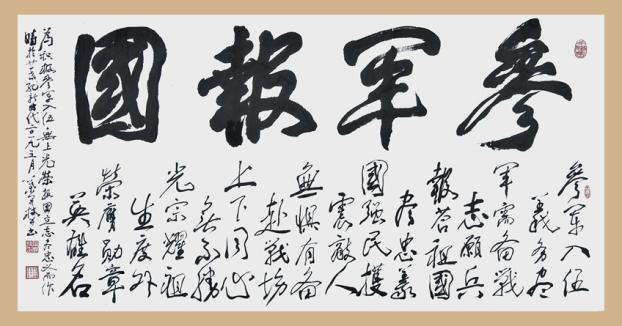 參軍報國
參軍入伍
義務盡
軍需備戰
志願兵
報答祖國
盡忠義
國强民
震敵人
無懼有備
赴戰場
上下同心
勝
光宗耀祖
生度外
榮膺勛章
英雄名
參軍入伍無上光榮報國立志
新時代二〇一九年五月